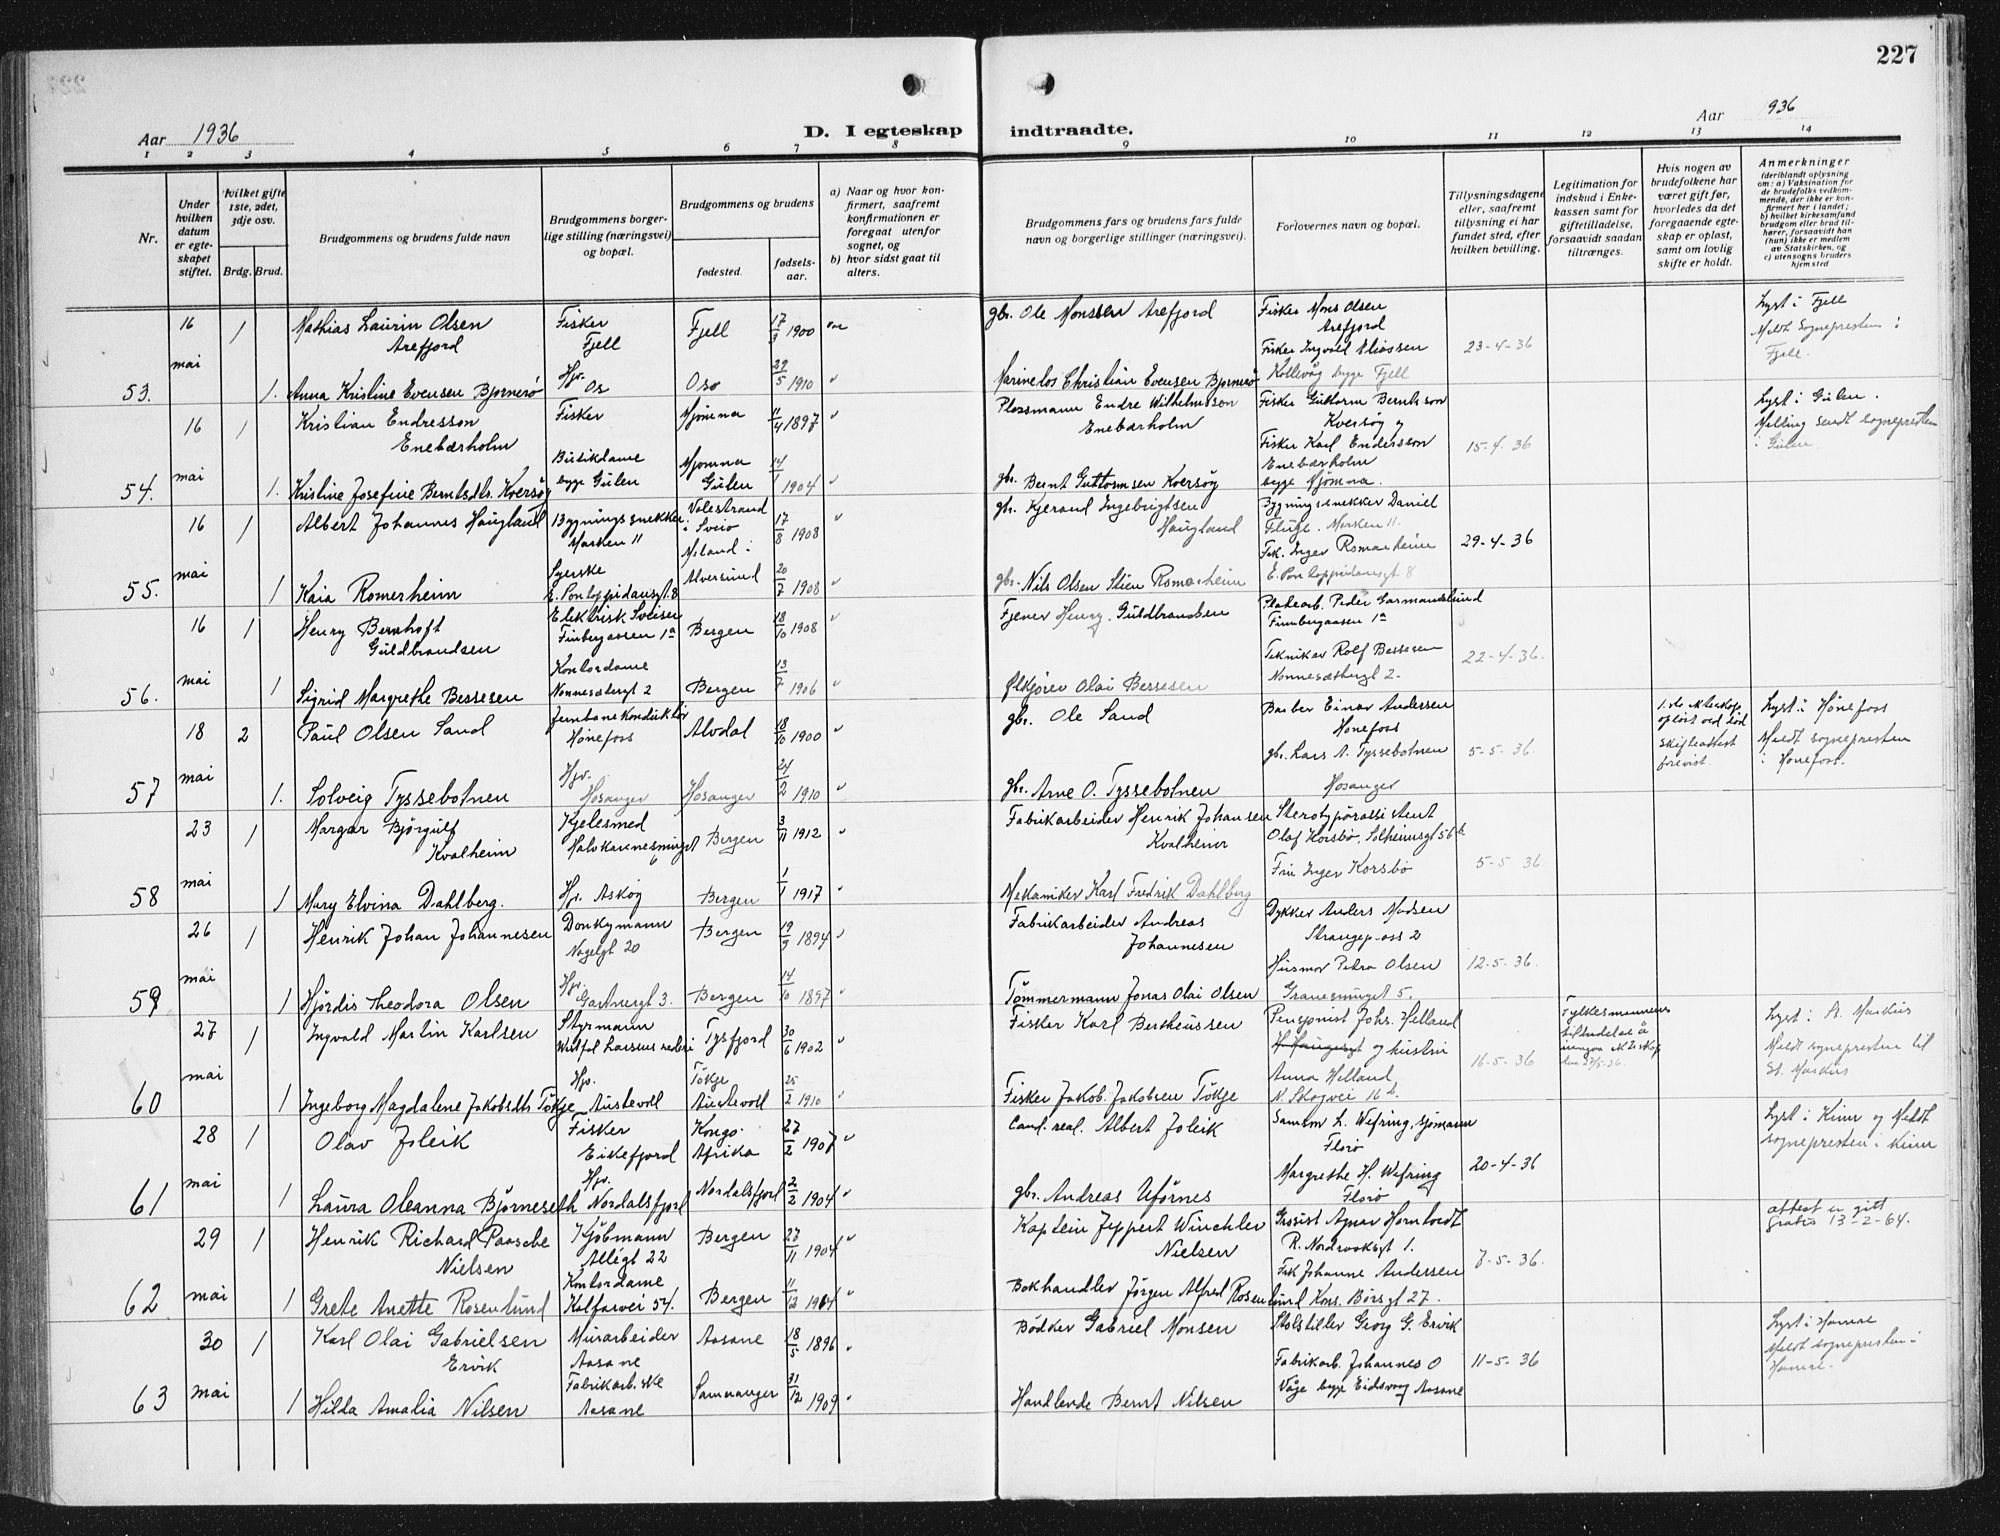 227
Aar 1936
D. I egteskap indtraadte.
Aar 936
1 2 3 4 5 6 7 8 9 10 11 12 13 14
Nr.
Under hvilken datum er egteskapet stiftet.
Hvilket gifte 1ste, 2det, 3dje osv.
Brdg. Brud.
Brudgommens og brudens fulde navn
Brudgommens borgerlige stilling (næringsvei) og bopæl.
Brudgommens og brudens
fødested.
fødselsaar.
a) Naar og hvor konfirmert, saafremt konfirmationen er foregaat utenfor sognet, og
b) hvor sidst gaat til alters.
Brudgommens fars og brudens fars fulde navn og borgerlige stillinger (næringsvei).
Forlovernes navn og bopæl.
Tillysningsdagene eller, saafremt tillysning ei har fundet sted, efter hvilken bevilling.
Legitimation for indskud i Enkekassen samt for giftetilladelse, forsaavidt saadan tiltrænges.
Hvis nogen av brudefolkene har været gift før, hvorledes da det foregaaende egteskap er opløst, samt om lovlig skifte er holdt.
Anmerkninger (deriblandt oplysning om: a) Vaksination for de brudefolks vedkommende, der ikke er konfirmert her i landet; b) hvilket kirkesamfund brudgom eller brud tilhører, forsaavidt han (hun) ikke er medlem av Statskirken, og c) utensogns bruders hjemsted
16 1 Mathias Laurin Olsen Arefjord Fisker Fjell Fjell 17/3 1900 gbr. Ole Monssen Arefjord Fisker Mons Olsen Arefjord Lyst i Fjell
mai Fisker Ingvald Eliassen 23-4-36 Meldt Sognepresten i Fjell.
53. 1. Anna Kristine Evensen Bjornerø Hjv. Os Oso 29/5 1910 " Marinelos Christian Evensen Bjornerø Kollevåg bygge Fjell
16 1 Kristian Endresson Enebærholm Fisker Mjømna 11/4 1897 " Plozsmann Endre Wilhelmsson Enebærholm Fisker Guttorm Berntsson Kversøy og Lyst i Gulen.
mai Fisker Karl Endersson Enebærholm 15-4-36 Melling sendt sognepresten i Gulen
54. 1. Kristine Josefine Berntsdtr. Kversøy Butikdame bygge Gulen Mjomna Gulen 14/1 1904 " gbr. Bernt Guttormsen Kversøy bygge Mjømna.
16 1 Albert Johannes Haugland Bygningssnekker Marken 11 Valestrand i Sveio 17/8 1908 " gbr. Kjerand Ingebrigtsen Haugland Bygningssnekker Daniel Fluge. Marken 11.
mai Frk. Inger Romarheim 29-4-36
55. 1 Kaia Romerheim Syerske E. Pontoppidansgt. 8 Meland i Alversund 20/7 1908 " gbr. Nils Olsen Stien Romarheim E. Pontoppidansgt 8
16 1 Henry Bernhoft Guldbrandsen Elektrisk Sveiser Finbergaasen 1a Bergen 18/10 1908 " Tjener Henry Guldbrandsen Platearb. Peder Garmandslund Finnbergaasen 1a
mai Tekniker Rolf Bessesen 22-4-36.
56. 1 Sigrid Margrethe Bessesen Kontordame Nonnesætergt 2 Bergen 13/7 1906 " Ølkjører Olai Bessesen Nonnesætergt 2.
18 2 Paul Olsen Sand Jernbanekonduktør Hønefoss Alvdal 18/10 1900 " gbr. Ole Sand Barber Einar Andersen Hønefoss Lyst i Hønefoss
mai gbr. Lars A. Tyssebotnen 5-5-36 skifteattest forevist. Meldt sognepresten i Hønefoss.
57 1. Solveig Tyssebotnen Hjv. Hosanger Hosanger 24/2 1910 " gbr. Arne O. Tyssebotnen Hosanger
23 1 Margar Bjørgulf Kvalheim Kjelesmed 6 Bergen 3/11 1912 " Fabrikarbeider Henrik Johansen Kvalheim Sterotypørassistent Olaf Korsbø, Solheimsgt 56 b.
mai Fru Inger Korsbø 5-5-36
58 1 Mary Elvina Dahlberg. Hjv. Askøy Bergen 1/1 1917 " Mekaniker Karl Fredrik Dahlberg
26 1 Henrik Johan Johannesen Donkymann Nagelgt 20 Bergen 19/9 1894 " Fabrikarbeider Andreas Johannesen Dykker Anders Madsen Strangeposs 2
mai Husmor Petra Olsen 12-5-36.
59 1 Hjørdis Theodora Olsen Hjv. Gartnergt 3. Bergen 14/10 1897 " Tømmermann Jonas Olai Olsen Granesmuget 5.
27 1 Ingvald Martin Karlsen Styrmann Westfal Larsens rederi Tysfjord 30/6 1902 " Fisker Karl Bertheussen Pensjonist Johs. Helland H. Haugesgt og hustru Fylkesmannens tilladelse å inngaa ekteskap Lyst i St. Markus
mai Anna Helland 16-5-36 Meldt sognepresten til St. Markus
60 1 Ingeborg Magdalene Jakobsdtr. Tökje Hjv. Austevoll Tökje Austevoll 25/2 1910 " Fisker Jakob Jakobsen Tökje N. Skogvei 16 b.
28 1 Olav Joleik Fisker Eikefjord Kongo Afrika 27/2 1907 " Cand. real. Albert Joleik Samson L. Wefring, sjømann Florø Lyst i Kinn og Meldt sognepresten i Kinn
mai Margrethe H. Wefring Florø 20-4-36
61 1 Laura Oleanna Bjørneseth Hjv. Nordalsfjord Nordalsfjord 2/2 1904 " gbr. Andreas Ufjørnes
29 1 Henrik Richard Paasche Nielsen Kjøbmann Allégt 22 Bergen 27/11 1904 " Kaptein Jeppert Winchler Nielsen Grosist Agnar Hornholdt R. Nordraaksgt 1. attest er gitt gratis 13-2-64.
mai Frk Johanne Andersen 7-5-36.
62 1 Grete Anette Rosenlund Kontordame Kalfarvei 54. Bergen 11/12 1914 " Bokhandler Jørgen Alfred Rosenlund Kong. Børsgt 27.
30 1 Karl Olai Gabrielsen Ervik Murarbeider Aasane Aasane 18/5 1896 " Bødker Gabriel Monsen Skotstiller Georg G. Ervik Lyst i Hamre
mai Fabrikarb. Johannes O 11-5-36 Meldt sognepresten i Hamre.
63 1 Hilda Amalia Nilsen Fabrikarb.ske Aasane Samnanger 31/12 1909 " Handlende Bernt Nilsen Våge bygge Eidsvaag Aasane